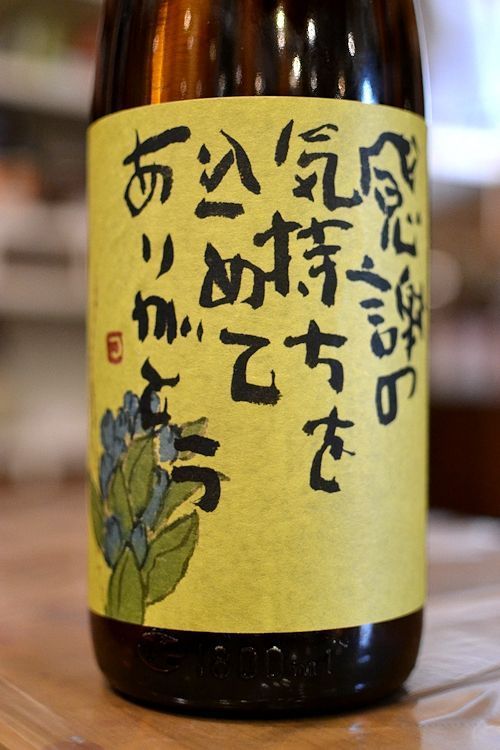 感謝の
気持ちを
込めて
ありがとう
1800ml